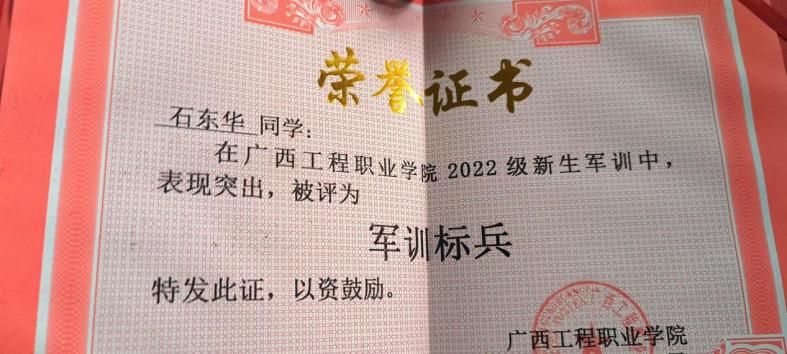 荣誉证书
石东华 同学：
在广西工程职业学院 2022 级新生军训中，
表现突出，被评为
军训标兵
特发此证，以资鼓励。
广西工程职业学院